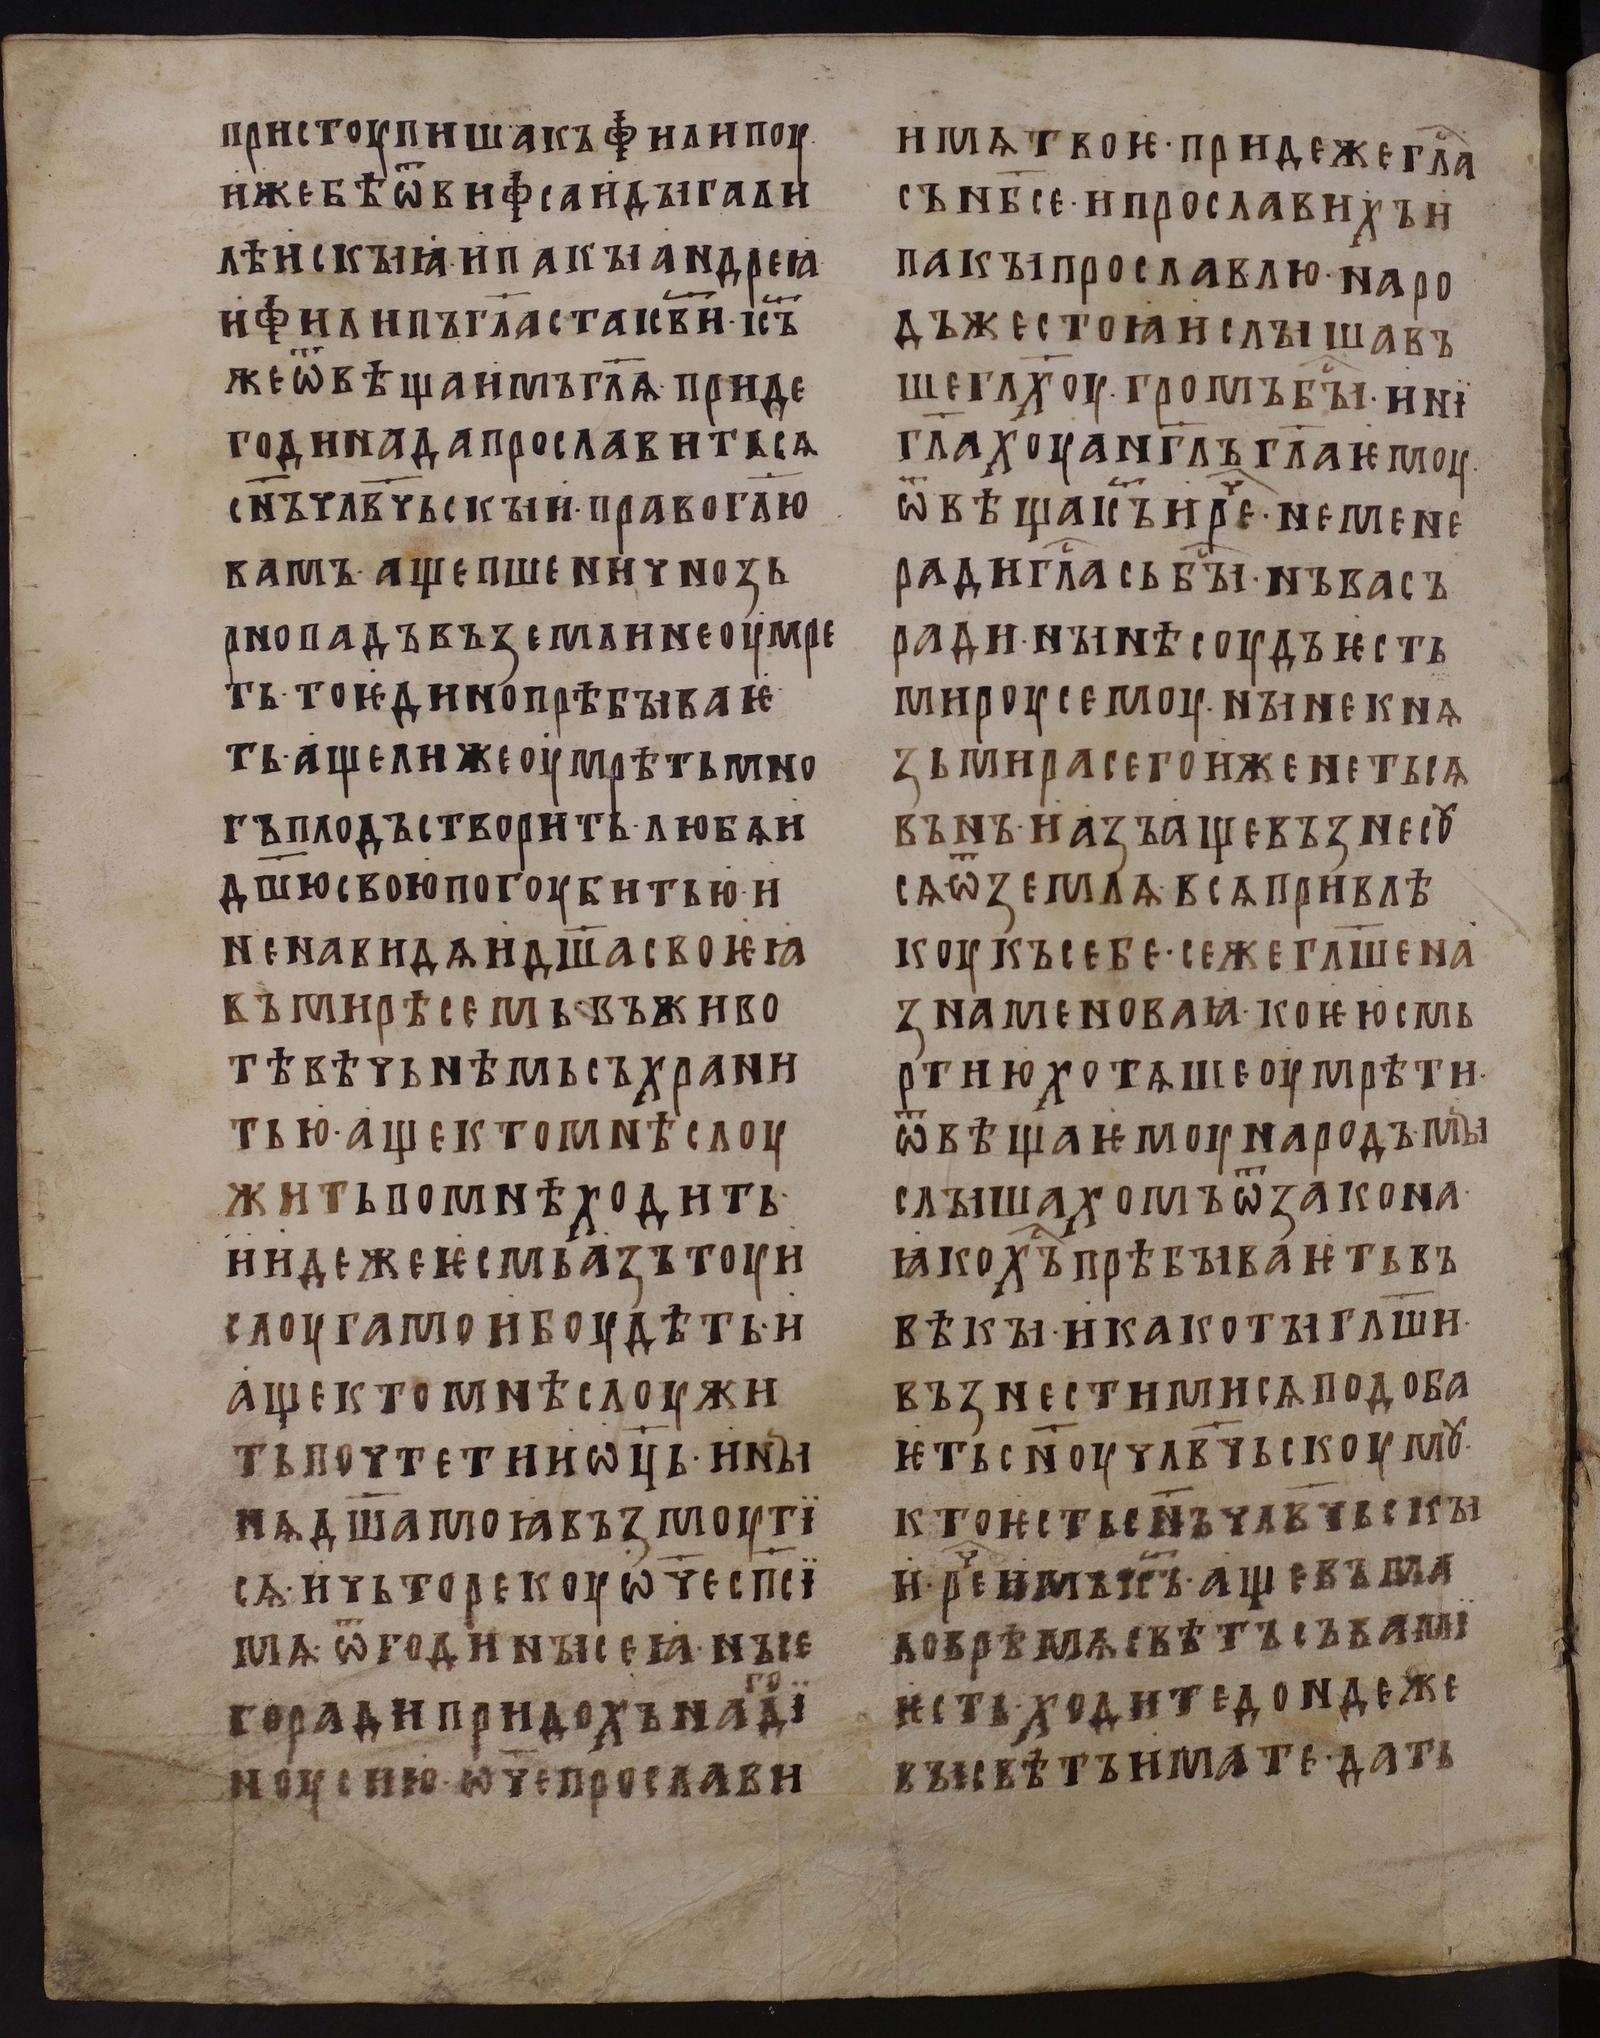 пристоупишакъфилипоу·
ижебѣѿвифсаидъігали
лѣискъіꙗ·ипакъіандреꙗ
ифилипъгл҃астаісв҃и·іс҃ъ
жеѿвѣщаимъгл҃ѧ·приде
годинадапрославитьсѧ
сн҃ъчлв҃чьскъіи·правогл҃ю
вамъ·ащепшеничнозь
рнопадъвъземлинеоумре
ть·тоѥдинопрѣбъіваѥ
ть·ащелижеоумрѣтьмно
гъплодъстворить·любѧи
дш҃юсвоюпогоубитью·и
ненавидѧидш҃асвоѥꙗ
въмирѣсемь·въживо
тѣвѣчьнѣмьсъхрани
тью·ащектомнѣслоу
житьпомнѣходить·
иидежеѥсмьазътоуи
слоугамоибоудѣть·и
ащектомнѣслоужи
тьпочтетииѡц҃ь·инъі
нѧдш҃амоꙗвъзмоутї
сѧ·ичьторекоуѡч҃есп҃сї
мѧ·ѿгодинъісеꙗ·нъсе
горадипридохънагодї
ноусию·ѡч҃епрослави
имѧтвоѥ·придежегл҃а
сънб҃се·ипрославихъи
пакъіпрославлю·наро
дъжестоꙗислъішавъ
шегл҃хоу·громъбъі·инї
гл҃ахоуанг҃лъгл҃аѥмоу·
ѿвѣщаіс҃ъирч҃е·немене
радигл҃асьбъі·нъвасъ
ради·нъінѣсоудъѥсть
мироусемоу·нъінекнѧ
зьмирасегоиженетьсѧ
вънъ·иазъащевъзнесꙋ
сѧѿземлѧ·всѧпривлѣ
коукъсебе·сежегл҃шена
знаменоваꙗ·коѥюсмь
ртиюхотѧшеоумрѣти·
ѿвѣщаѥмоународъ·мъі
слъішахомъѿзакона·
ꙗкох҃ъпрѣбъіваѥтьвъ
вѣкъі·икакотъігл҃ши·
възнестимисѧподоба
ѥтьсн҃оучлв҃чьскоумꙋ·
ктоѥстьсн҃ъчлв҃чьскъі
и·рч҃еимъіс҃ъ·ащевъма
ловрѣмѧсвѣтъсъвамї
ѥсть·ходитедондеже
въісвѣтъимате·дать